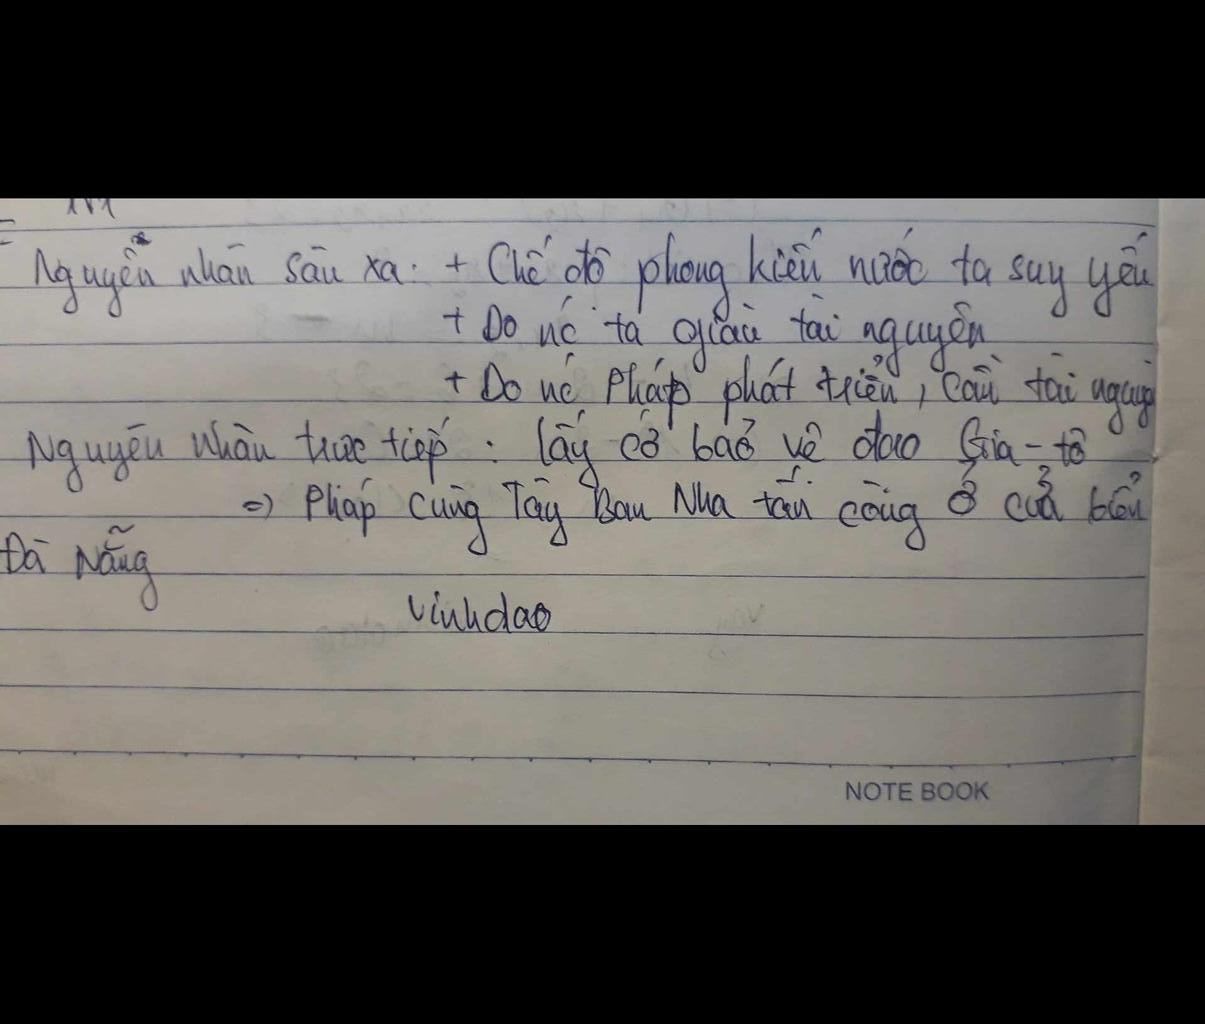 Nguyên nhân sâu xa: + Chế độ phong kiến nước ta suy yếu
+ Do nc ta giàu tài nguyên
+ Do nc Pháp phát triển, cần tài nguyê
Nguyên nhân trực tiếp: lấy cớ bảo vệ đạo Gia-tô
=> Pháp cùng Tây Ban Nha tấn công ở cửa biển
Đà Nẵng
vinhdao
NOTE BOOK